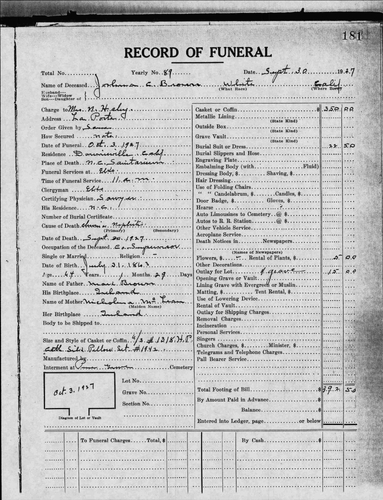 181
RECORD OF FUNERAL
Total No. Yearly No. 89 Date Sept. 30 1927
Name of Deceased Joshua C. Brown White Calif
Husband—Wife—Widow Son—Daughter of (What Race) (Where Born)
Charge to Mrs. N.
Address La Porte
Order Given by Same
How Secured note
Date of Funeral Oct. 3, 1927
Residence Downieville, Calif.
Place of Death N.C. Sanitarium
Funeral Services at Elks
Time of Funeral Service 11 a.m.
Clergyman Elks
Certifying Physician Sawyer
His Residence N.C.
Number of Burial Certificate
Cause of Death Nephritis
(Primary) (Secondary)
Date of Death Sept. 30, 1927
Occupation of the Deceased Supervisor
Single or Married Religion
Date of Birth July 31, 1863
Age 64 Years, 1 Months, 29 Days
Name of Father Brown
His Birthplace Ireland
Name of Mother
(Maiden Name)
Her Birthplace Ireland
Body to be Shipped to
Size and Style of Casket or Coffin
Manufactured by
Interment at Cemetery
Oct 3, 1927
Lot No.
Grave No.
Section No.
Diagram of Lot or Vault
Casket or Coffin $ 350 00
Metallic Lining
(State Kind)
Outside Box
(State Kind)
Grave Vault
(State Kind)
Burial Suit or Dress 22 50
Burial Slippers and Hose
Engraving Plate
Embalming Body (with Fluid)
Dressing Body, $ Shaving, $
Hair Dressing
Use of Folding Chairs
" " Candelabrum, $ Candles, $
Door Badge, $ Gloves, $
Hearse
Auto Limousines to Cemetery @ $
Autos to R. R. Station @ $
Other Vehicle Service
Aeroplane Service
Death Notices in Newspapers
(Names of Newspapers)
Flowers, $ Rental of Plants, $ 5 00
Other Decorations
Outlay for Lot 15 00
Opening Grave or Vault
Lining Grave with Evergreen or Muslin
Matting, $ Tent Rental, $
Use of Lowering Device
Rental of Vault
Outlay for Shipping Charges
Removal Charges
Incineration
Personal Services
Singers
Church Charges, $ Minister, $
Telegrams and Telephone Charges
Pall Bearer Service
Total Footing of Bill $ 392 50
By Amount Paid in Advance
Balance $
Entered into Ledger, page or below
To Funeral Charges. Total $ By Cash $